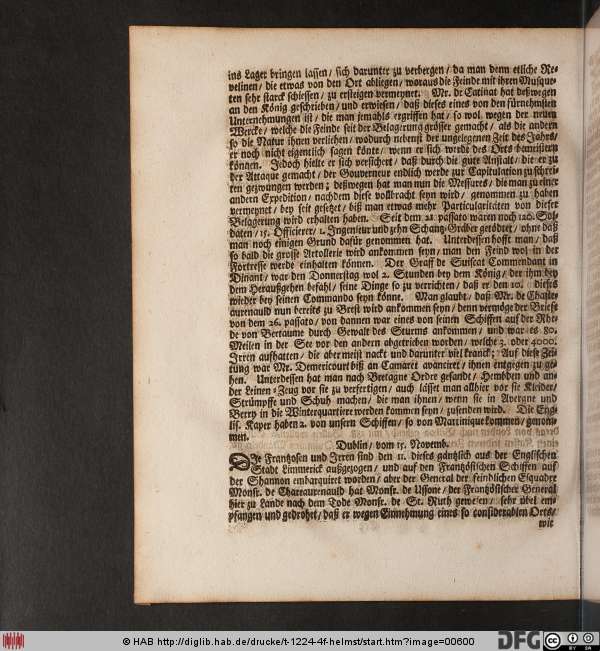 ins Lager bringen lassen / sich darunter zu verbergen / da man denn etliche Re-
velinen / die etwas von den Ort abliegen / woraus die Feinde mit ihren Musque-
ten sehr starck schiessen / zu ersteigen vermeynet. Mr. de Catinat hat deßwegen
an den König geschrieben / und erwiesen / daß dieses eines von den fürnehmsten
Unternehmungen ist / die man jemahls ergriffen hat / so wol wegen der neuen
Wercke / welche die Feinde seit der Belagerung grösser gemacht / als die andern
so die Natur ihnen verliehen / wodurch nebenst der ungelegenen Zeit des Jahrs /
er noch nicht eigentlich sagen könte / wenn er sich werde des Orts bemeistern
können. Jedoch hielte er sich versichert / daß durch die gute Anstalt / die er zu
der Attaque gemacht / der Gouverneur endlich werde zur Capitulation zu schrei-
ten gezwungen werden; deßwegen hat man nun die Messures / die man zu einer
andern Expedition / nachdem diese vollbracht seyn wird / genommen zu haben
vermeynet / bey seit gesetzet / biß man etwas mehr Particulariteten von dieser
Belagerung wird erhalten haben. Seit dem 21 passato waren noch 120. Sol-
daten / 15. Officierer / 1. Ingenieur und zehn Schantz-Gräber getödtet / ohne daß
man noch einigen Grund dafür genommen hat. Unterdessen hofft man / daß
so bald die grosse Artollerie wird ankommen seyn / man den Feind wol in der
Fortresse werde einhalten können. Der Graff de Guiscat Commendant in
Dinant / war den Donnerstag wol 2. Stunden bey dem König / der ihm bey
dem Heraußgehen befahl / seine Dinge so zu verrichten / daß er den 10. dieses
wieder bey seinen Commando seyn könne. Man glaubt / daß Mr. de Chasteau-
aurenauld nun bereits zu Brest wird ankommen seyn / denn vermöge der Briefe
von dem 26. passato / von dannen war eines von seinen Schiffen auf der Rhe-
de von Bertaume durch Gewalt des Sturms ankommen / und war es 80.
Meilen in der See vor den andern abgetrieben worden / welche 3. oder 4000.
Irren aufhatten / die aber meist nackt und darunter viel kranck; Auf diese Zei-
tung war Mr. Demericourt biß an Camaret avanciret / ihnen entgegen zu ge-
hen. Unterdessen hat man nach Bretagne Ordre gesandt / Hembden und an-
der Leinen-Zeug vor sie zu verfertigen / auch lässet man allhier vor sie Kleider /
Strümpffe und Schuh machen / die man ihnen / wenn sie in Avergne und
Berry in die Winterquartiere werden kommen seyn / zusenden wird. Die Eng-
lis. Kaper haben 2. von unsern Schiffen / so von Martinique kommen / genom-
men.
Dublin / vom 15. Novemb.
Die Frantzosen und Irren sind den 11. dieses gäntzlich aus der Englischen
Stadt Limmerick außgezogen / und auf den Frantzösischen Schiffen auf
der Shannon embarquiret worden / aber der General der feindlichen Esquadre
Monsr. de Chateaurenauld hat Monsr. de Ussone / der Frantzösischer General
hier zu Lande nach dem Tode Monsr. de St. Ruth gewesen / sehr übel em-
pfangen und gedrohet / daß er wegen Einnehmung eines so considerablen Orts /
wie
© HAB http://diglib.hab.de/drucke/t-1224-4f-helmst/start.htm?image=00600
DFG
cc
BY SA